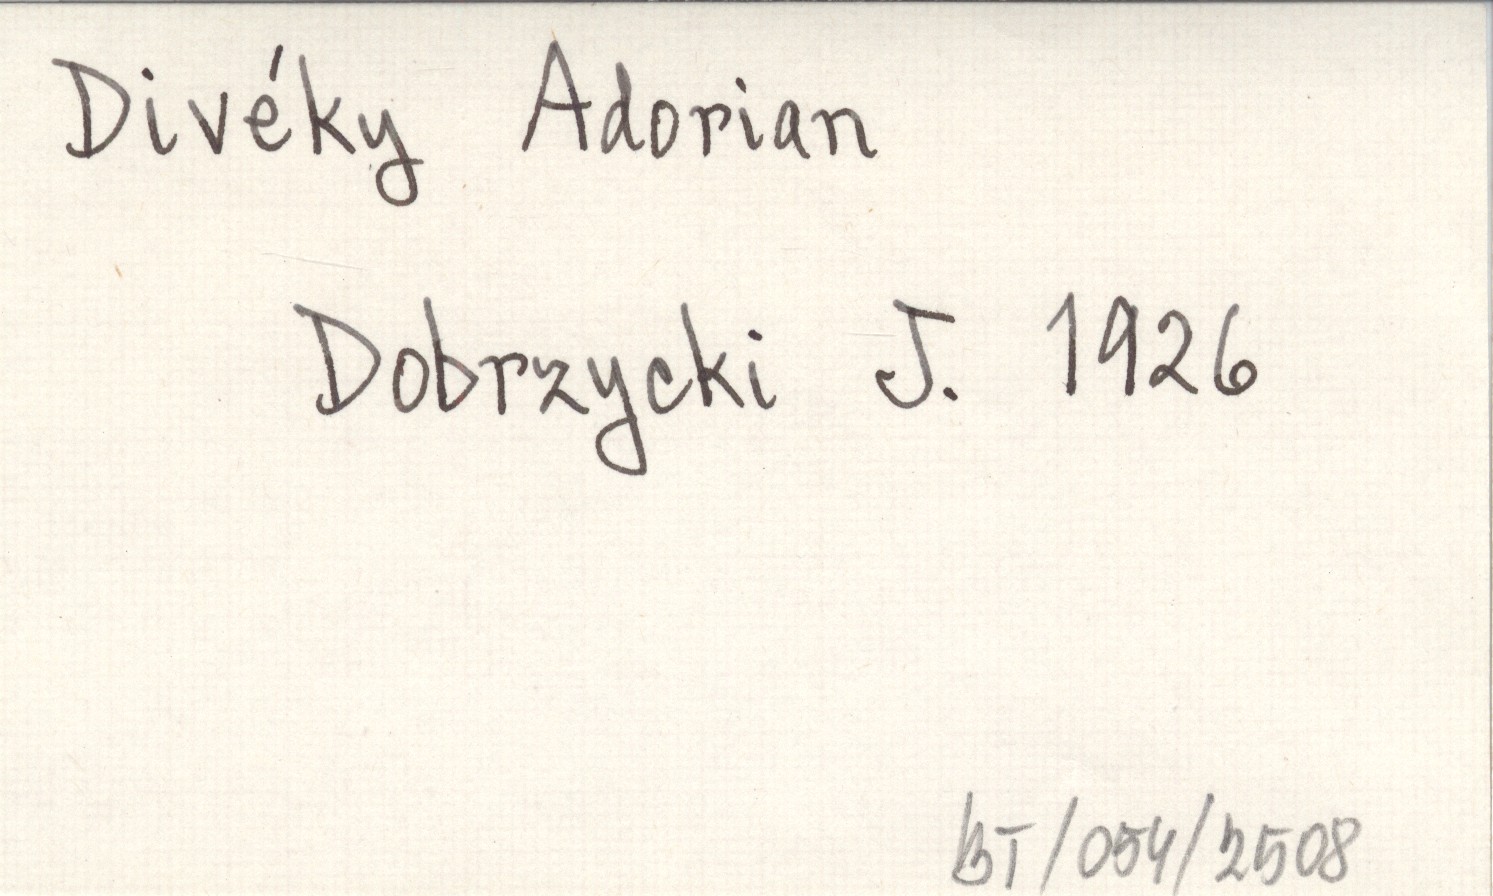 Divéky Adorian
Dobrzycki J. 1926
BT/054/2508